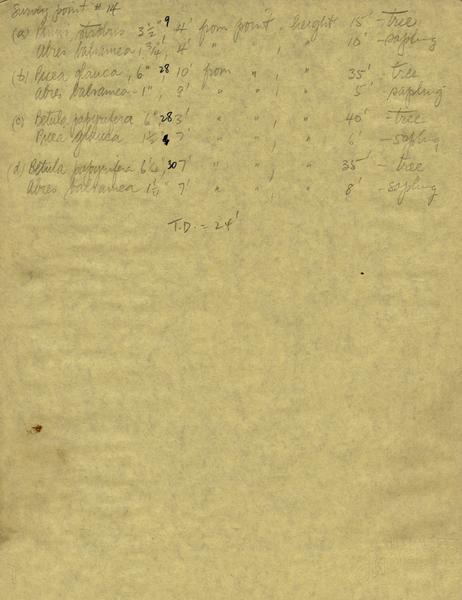 Survey point # 14
(a) Pinus strobus 3 1/2" 9 4' from point, height 15' - tree
Abies balsamea 1 3/4", 4' " " , " 10' - sapling
(b) Picea glauca, 6" 28 10' from " , " 35' - tree
Abies balsamea - 1", 8' " " , " 5' - sapling
(c) Betula papyrifera 6" 28 3' " " , " 40' - tree
Picea glauca 1 1/2 7' " " , " 6' - sapling
(d) Betula papyrifera 30 7' " " , " 35' - tree
Abies balsamea 1 1/2" 7' " " , " 8' - sapling
T.D. = 24'